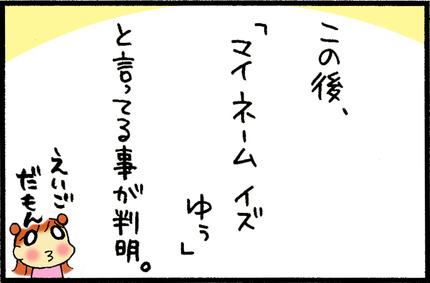 この後、
「マイ ネーム イズ
ゆぅ」
と言ってる事が判明。
えいご
だもん